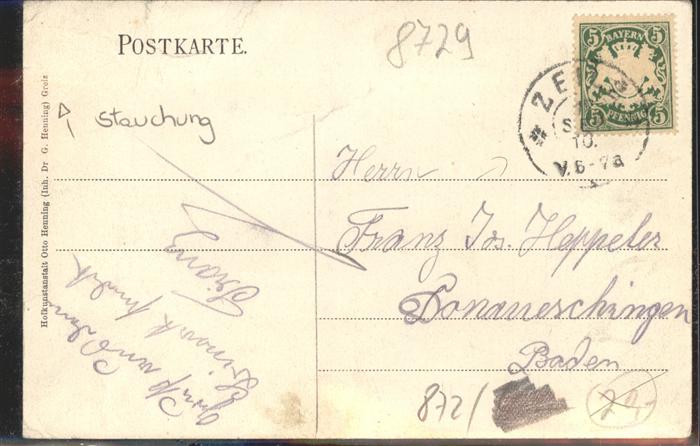 POSTKARTE.
8729
5 BAYERN 5
5 PFENNIG 5
ZE
S
10.
V.6-7a
Hofkunstanstalt Otto Henning (Inh. Dr G. Henning) Greiz
Stauchung
Herrn
Franz Jos. Heppeler
Donaueschingen
Baden
872/
24.-
Franz